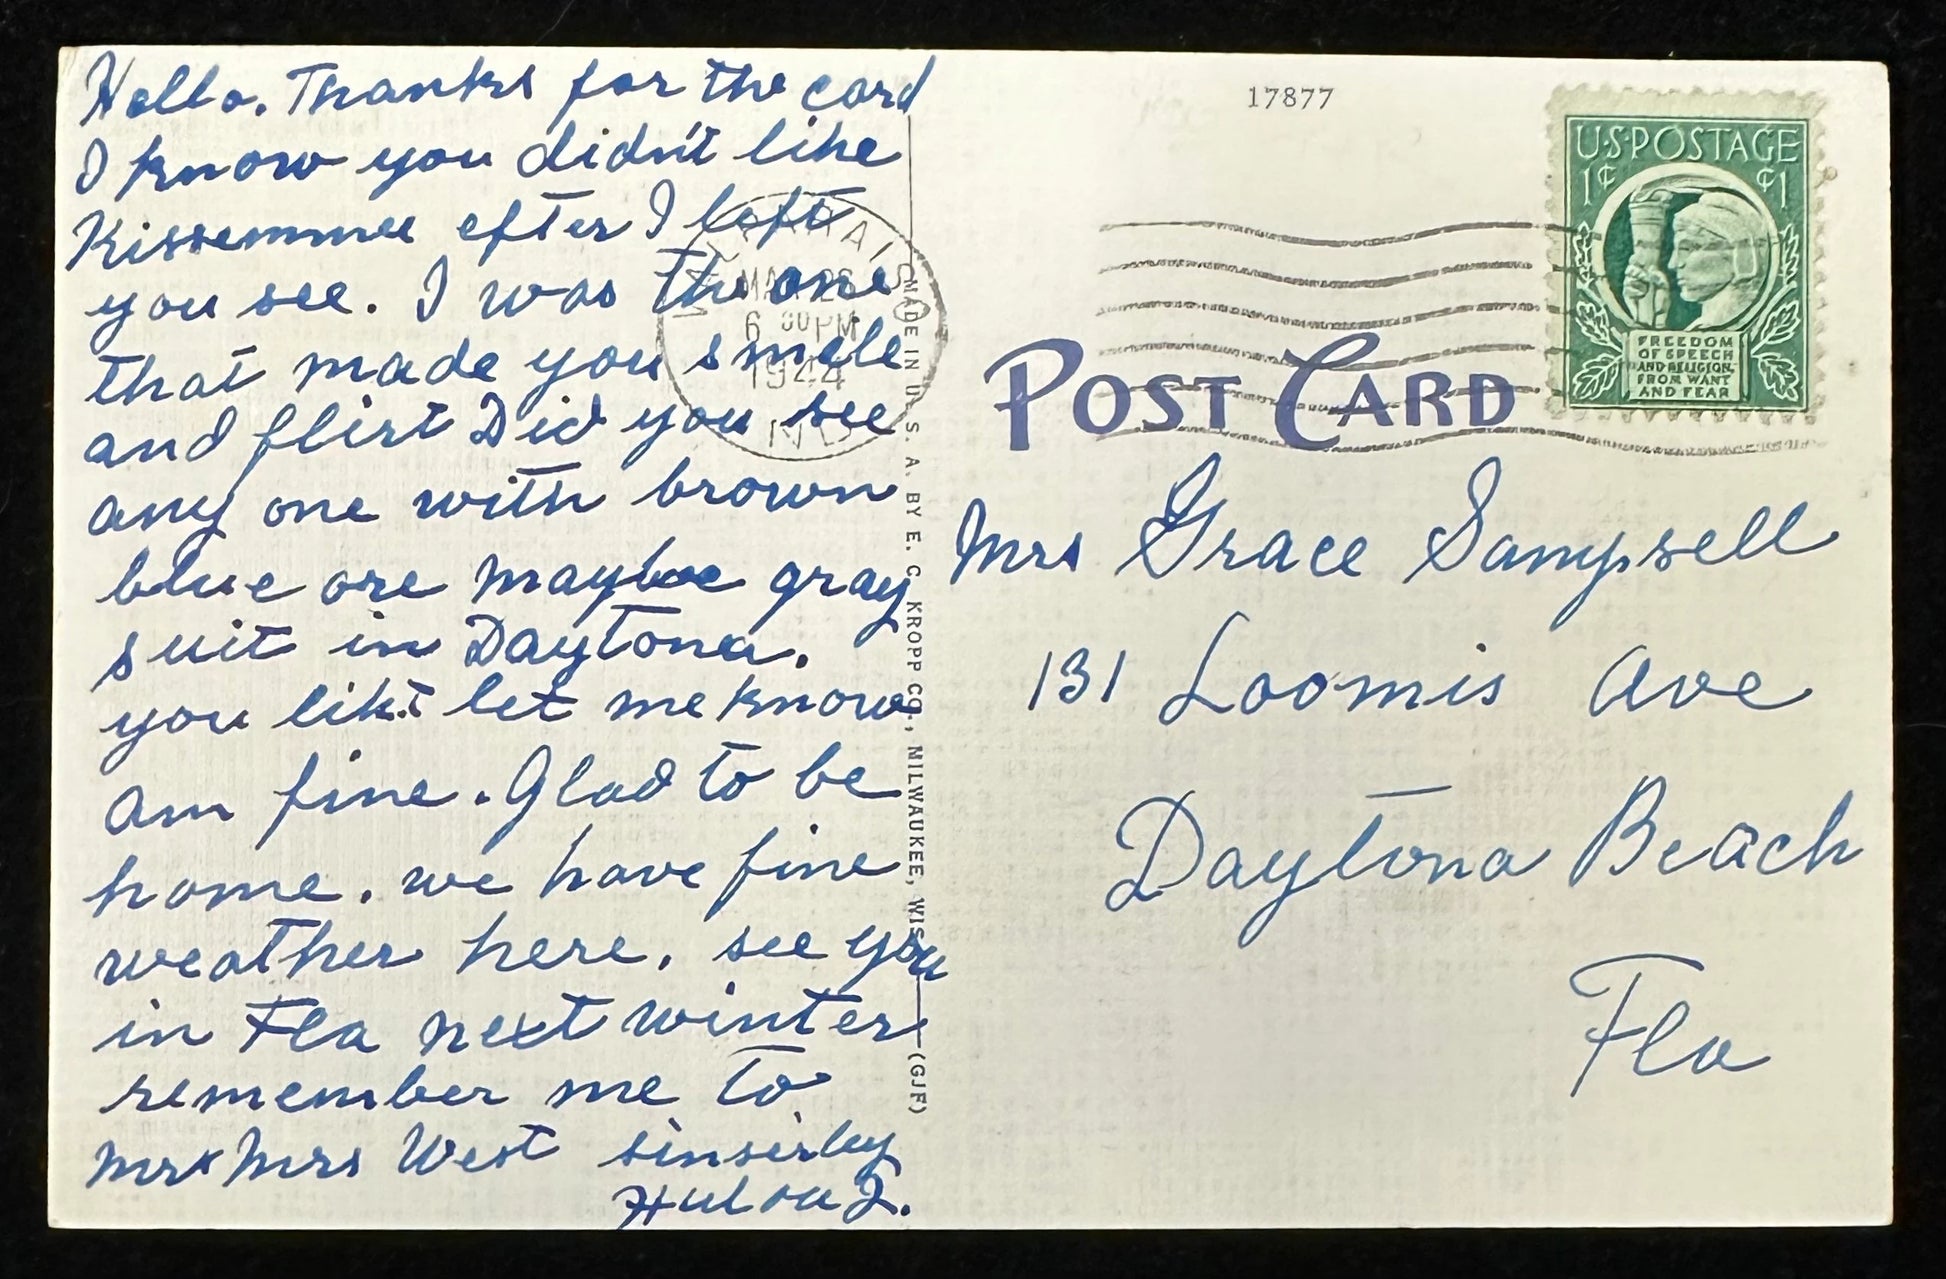 Hello. Thanks for the card
I know you didn't like
Kissemmee efter I left
you see. I was the one
that made you smele
and flirt Did you see
any one with brown
blue ore maybe gray
suit in Daytona.
you like.t let me know
am fine. Glad to be
home. we have fine
weather here. see you
in Fla next winter
remember me to
Mr & Mrs West sinserley
MAR 28
6 00 PM
1944
IND
MADE IN U. S. A. BY E. C. KROPP CO., MILWAUKEE, WIS. (GJF)
17877
U.S. POSTAGE
1¢ ¢1
FREEDOM
OF SPEECH
AND RELIGION,
FROM WANT
AND FEAR
POST CARD
Mrs Grace Sampsell
131 Loomis Ave
Daytona Beach
Fla